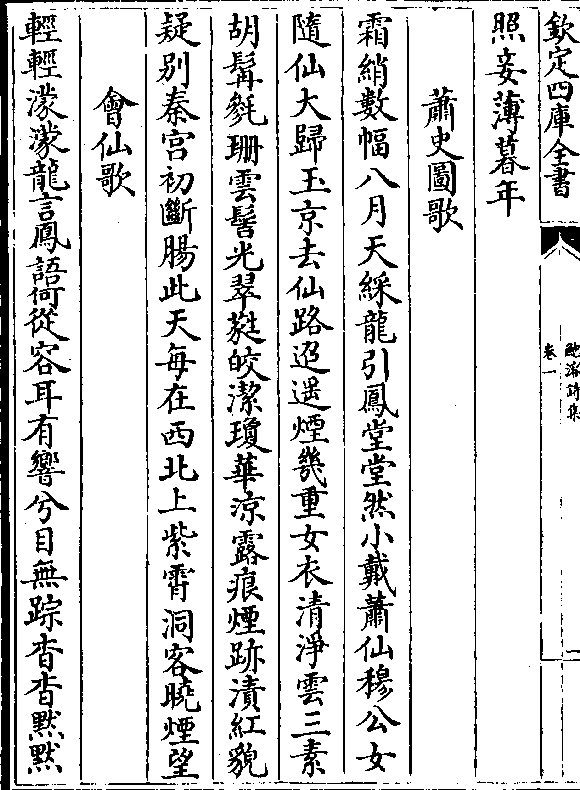 欽定四庫全書
鮑溶詩集
卷一
照妾薄暮年
蕭史圖歌
霜綃數幅八月天綵龍引鳳堂堂然小載蕭仙穆公女
隨仙大歸玉京去仙路迢遥煙幾重女衣清淨雲三素
胡髯毿珊雲髻光翠蕤皎潔瓊華凉露痕煙跡漬紅貌
疑别秦宫初斷腸此天每在西北上紫霄洞客曉煙望
會仙歌
輕輕濛濛龍言鳳語何從容耳有響兮目無踪杳杳默默